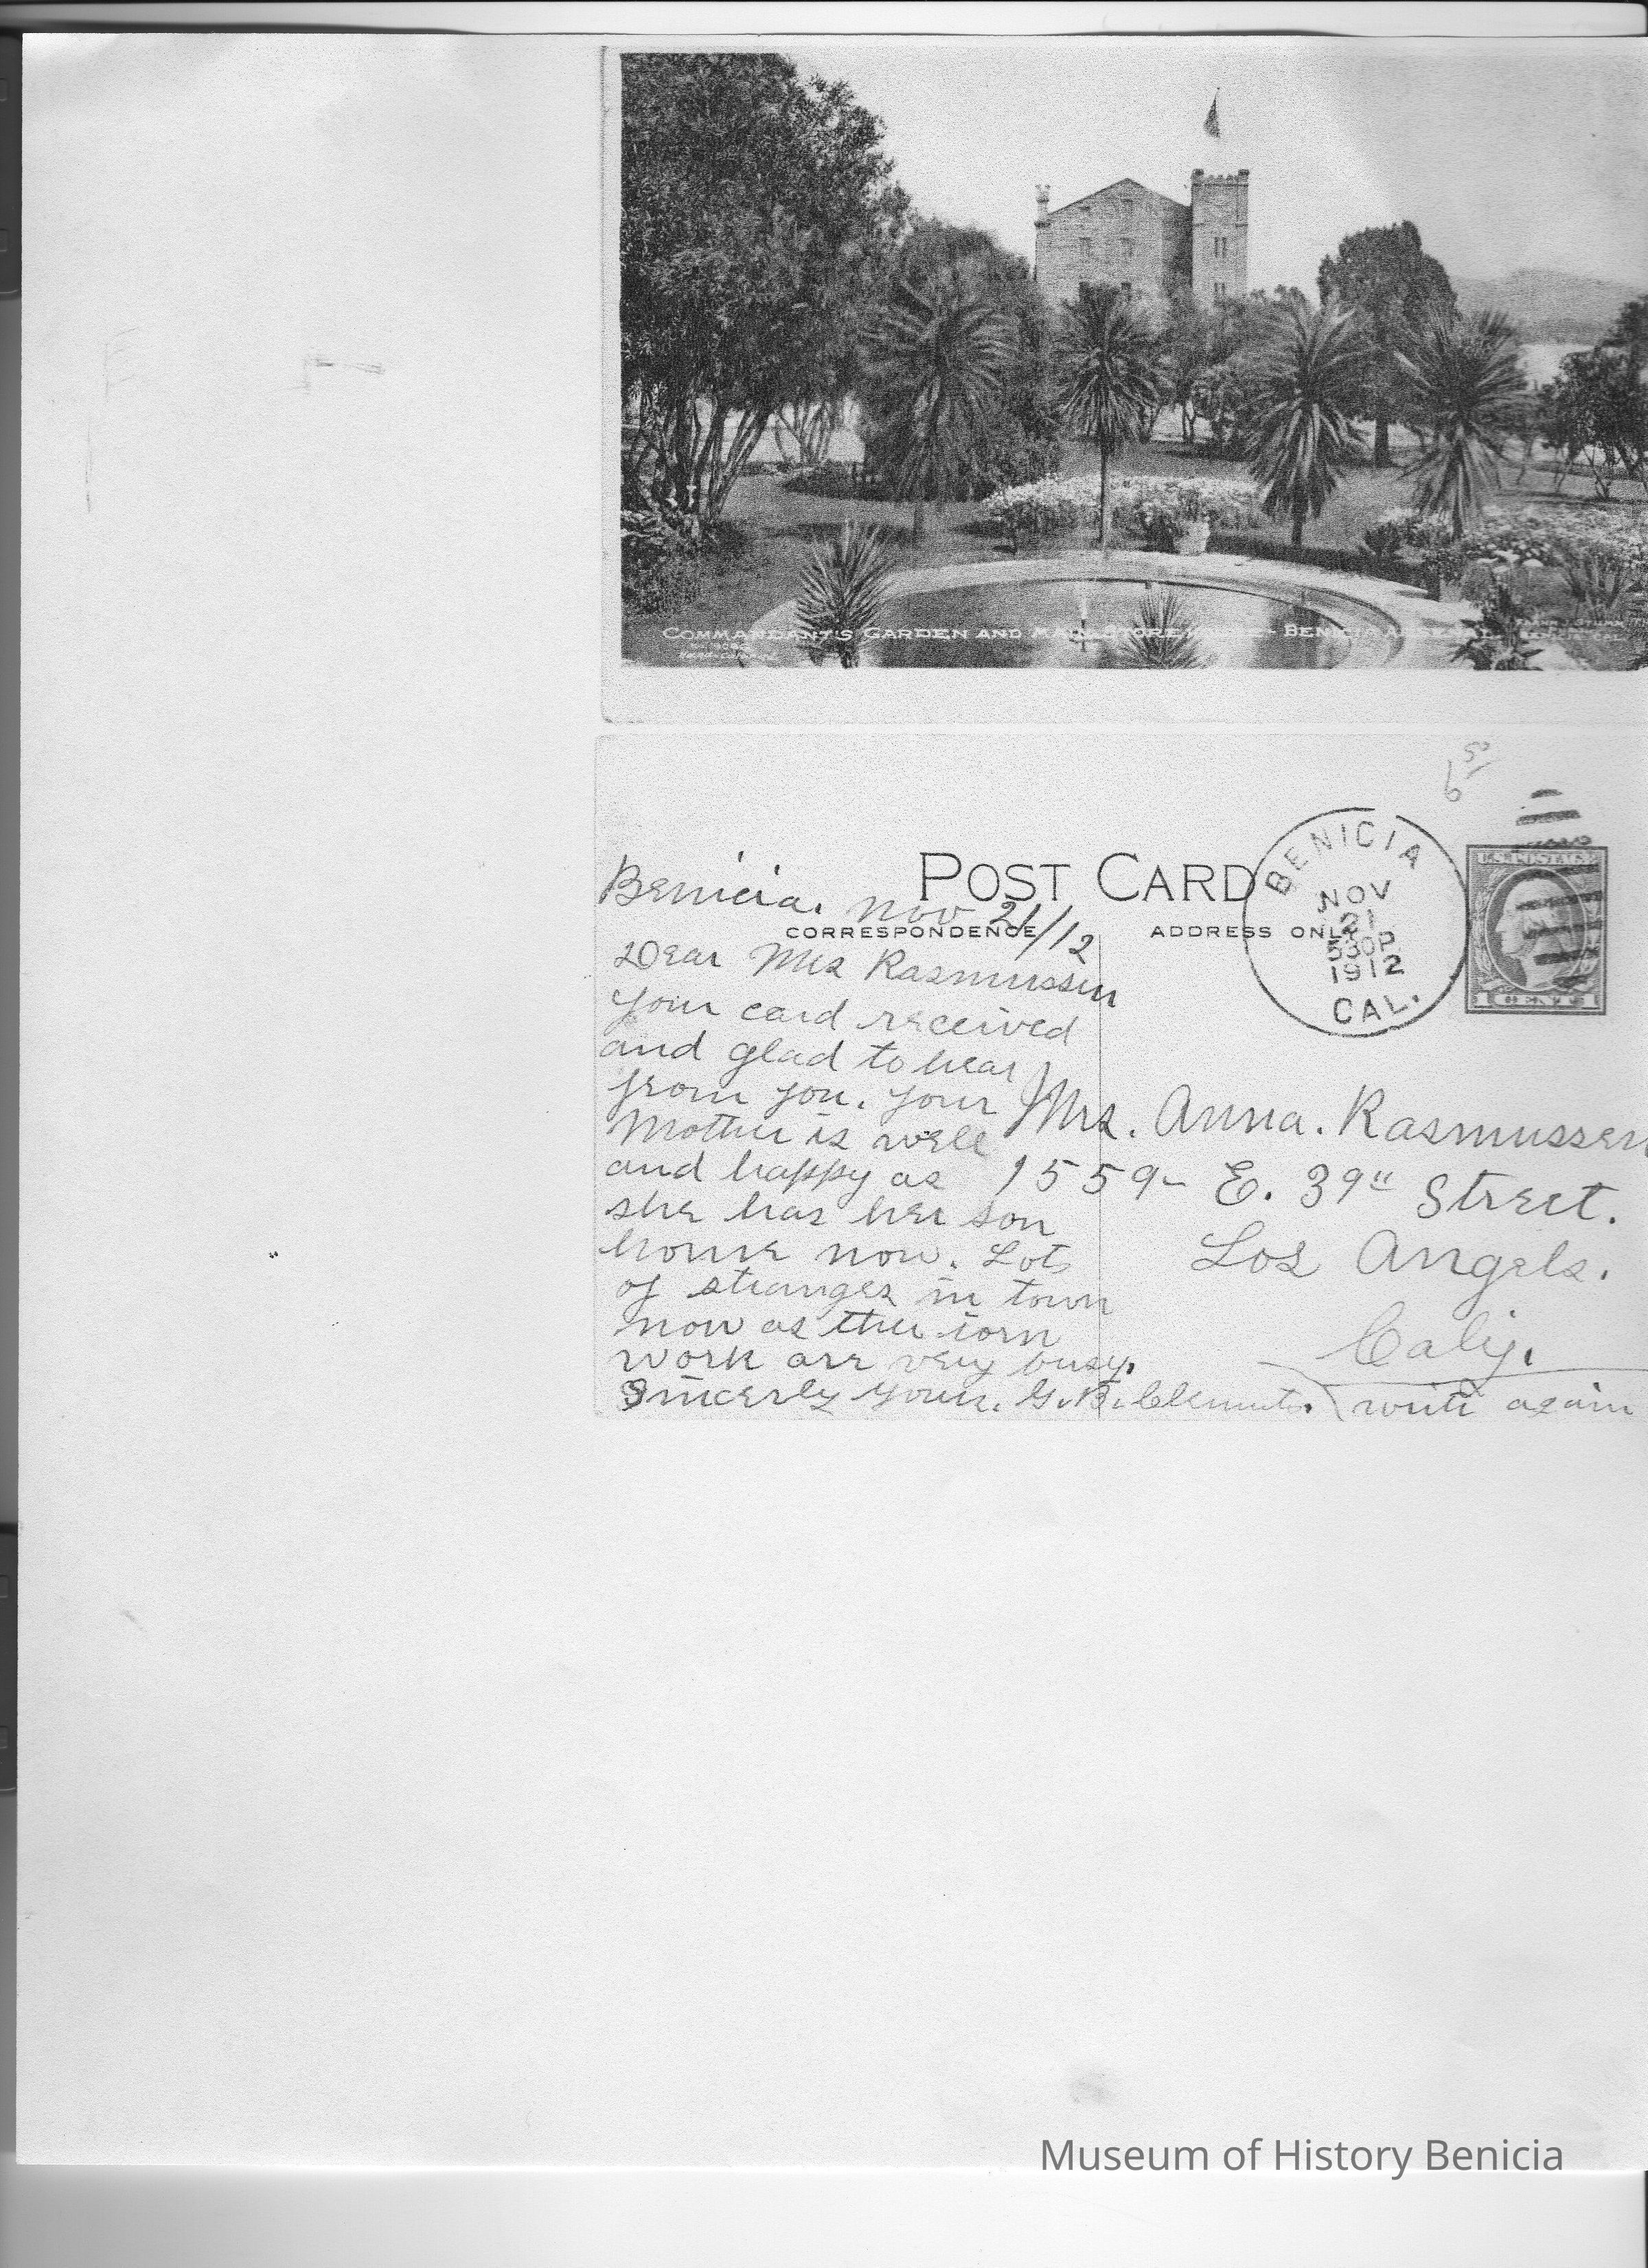 COMMANDANT'S GARDEN AND MAIN STOREHOUSE - BENICIA ARSENAL
Hand-Colored
6 50
POST CARD
CORRESPONDENCE
ADDRESS ONLY
BENICIA
NOV
21
530P
1912
CAL.
Benicia. Nov 21/12
Dear Mrs Rasmussen
Your card received
and glad to hear
from you. Your
Mother is well
and happy as
she has her son
home now. Lots
of stranges in town
now as the iorn
work are very busy.
Sincerly yours. G. B. Clements.
write again
Mrs. Anna. Rasmussen
1559- E. 39" Street.
Los Angels.
Calif.
Museum of History Benicia